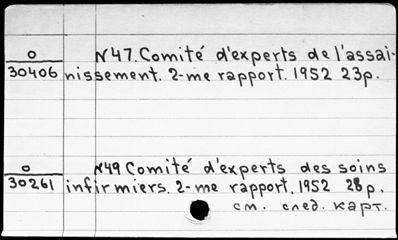 O
30406
N47. Comité d'experts de l'assai-
nissement. 2-me rapport. 1952 23p.
O
30261
N49 Comité d'experts des soins
infirmiers. 2-me rapport. 1952 28p.
см. след. карт.